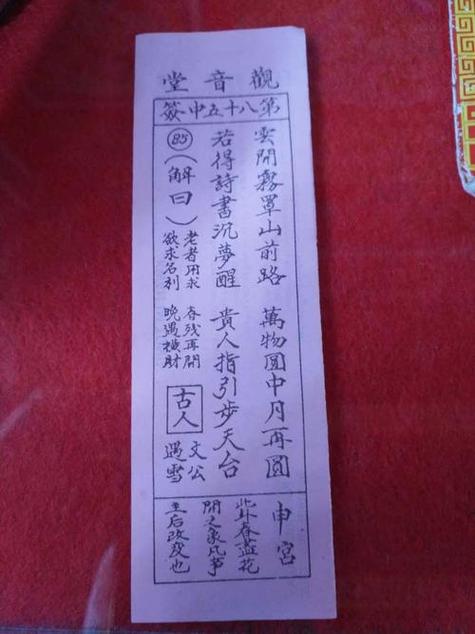 觀音堂
第八十五中簽
雲開霧罩山前路 萬物圓中月再圓
若得詩書沉夢醒 貴人指引步天台
85
(解曰)
老者用求 春残再開
欲求名利 晚遇橫財
古人
文公
遇雪
申宮
此卦春盡花
開之象凡事
主后改变也